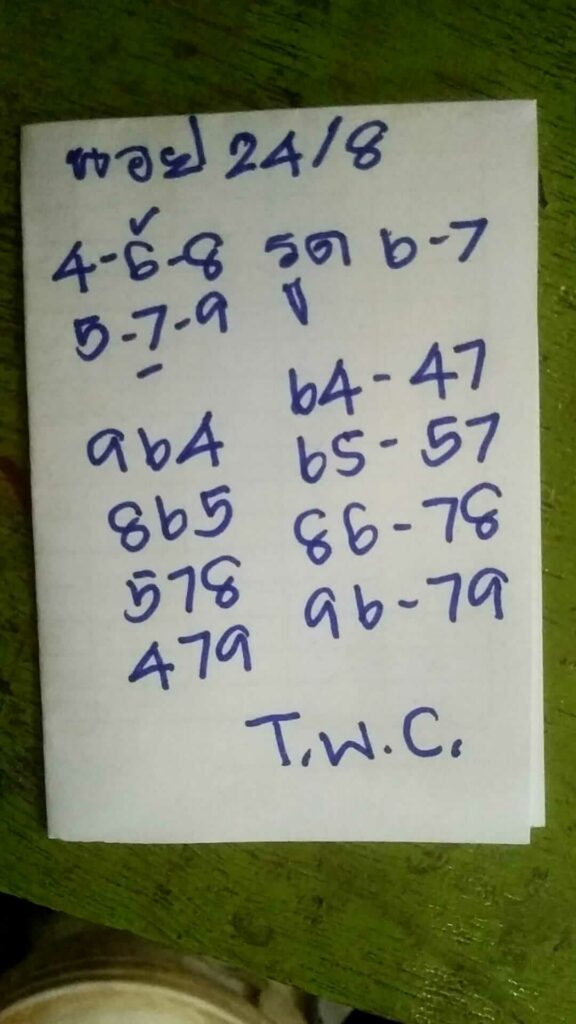 หอย 24/8
4-6-8 รูด 6-7
5-7-9
964
865
578
479
64-47
65-57
86-78
96-79
T.W.C.